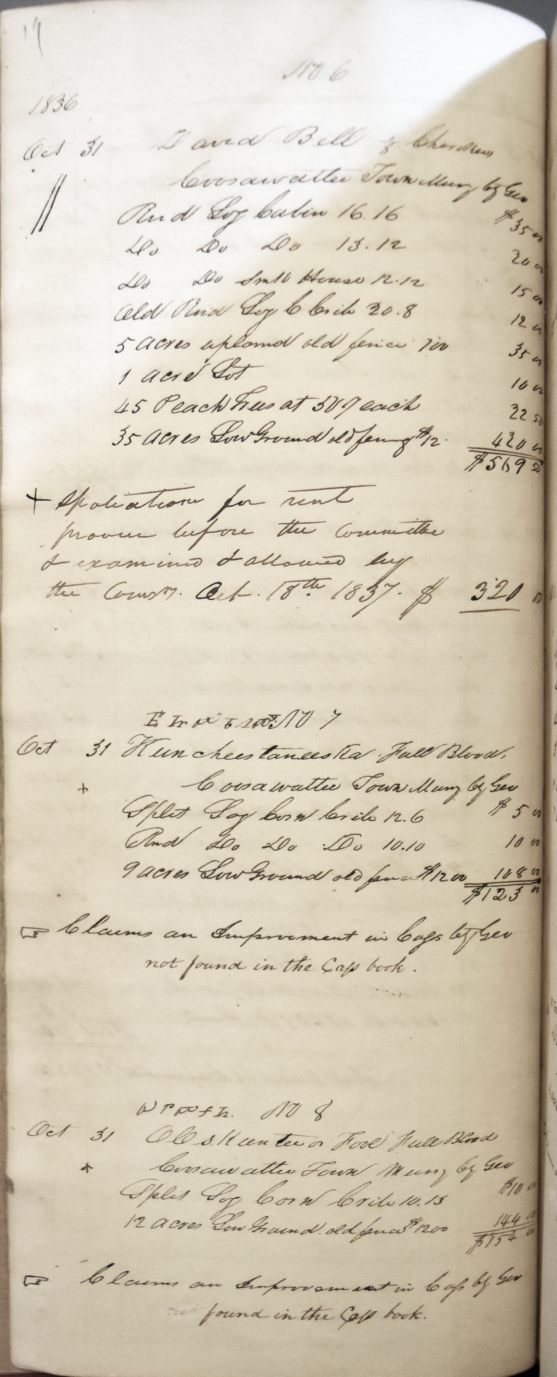 19
No 6
1836
Oct 31 David Bell ½ Cherokee
Coosawattee Town Murry Cty Geo
Rnd Log Cabin 16.16 $35 00
Do Do Do 13.12 20 00
Do Do Smk House 12.12 15 00
Old Rnd Log C Crib 20.8 12 00
5 acres upland old fence 700 35 00
1 acre Lot 10 00
45 Peach Trees at 50 each 22 50
35 acres Low Ground old fence $12. 420 00
$569 50
+ Spoliations for rent
proven before the Committee
& examined & allowed by
the Comsr. Oct. 18th 1837. $ 320 00
No 7
Oct 31 Kuncheestaneeska Full Blood.
+ Coosawattee Town Murry Cty Geo
Split Log Corn Crib 12.6 $ 5 00
Rnd Do Do Do 10.10 10 00
9 acres Low Ground old fence $12 00 108 00
$123 00
☞ Claims an Improvement in Cass Cty Geo
not found in the Cass book.
No 8
Oct 31 Fool Full Blood
+ Coosawattee Town Murry Cty Geo
Split Log Corn Crib 10.13 $10 00
12 acres Low Ground old fence $12 00 144 00
$154 00
☞ Claims an Improvement in Cass Cty Geo
not found in the Cass book.